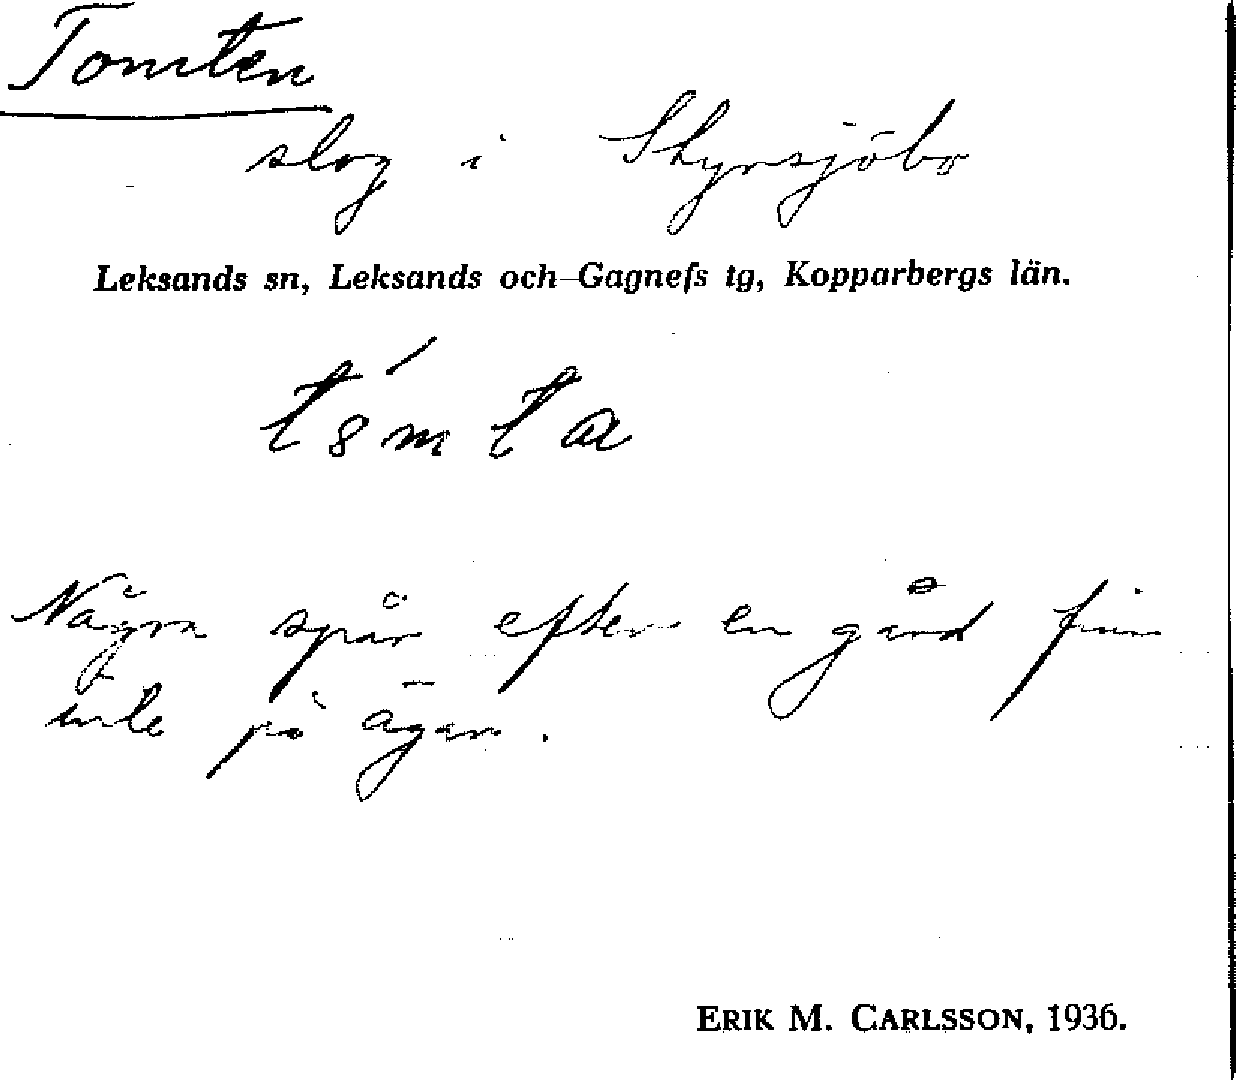 Tomten
slog i Styrsjöbo
Leksands sn, Leksands och Gagnefs tg, Kopparbergs län.
Några spår efter en gård finns
inte på ägan.
ERIK M. CARLSSON, 1936.